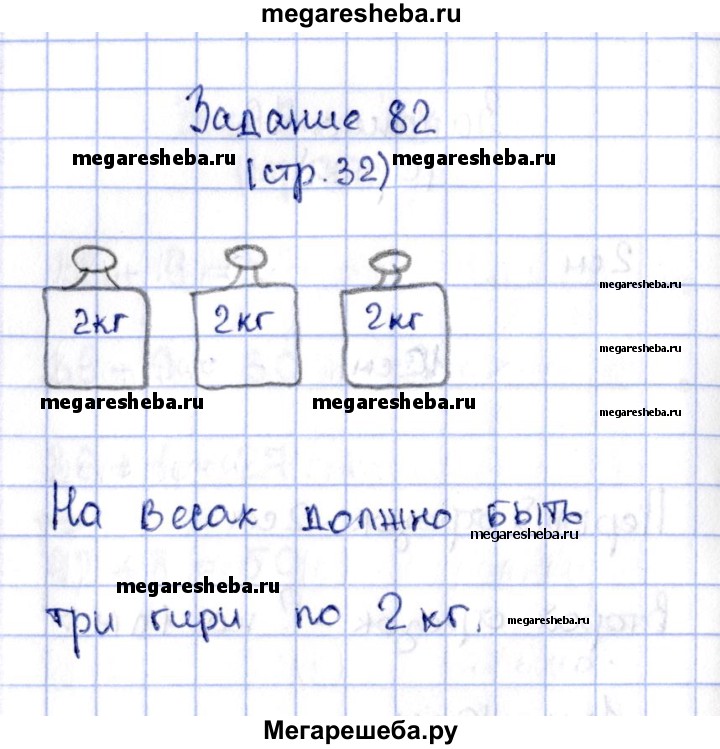 megaresheba.ru
Задание 82
megaresheba.ru megaresheba.ru
(стр.32)
megaresheba.ru
2кг 2кг 2кг
megaresheba.ru
megaresheba.ru megaresheba.ru
megaresheba.ru
На весах должно быть
megaresheba.ru
megaresheba.ru
три гири по 2 кг.
megaresheba.ru
Мегарешеба.ру